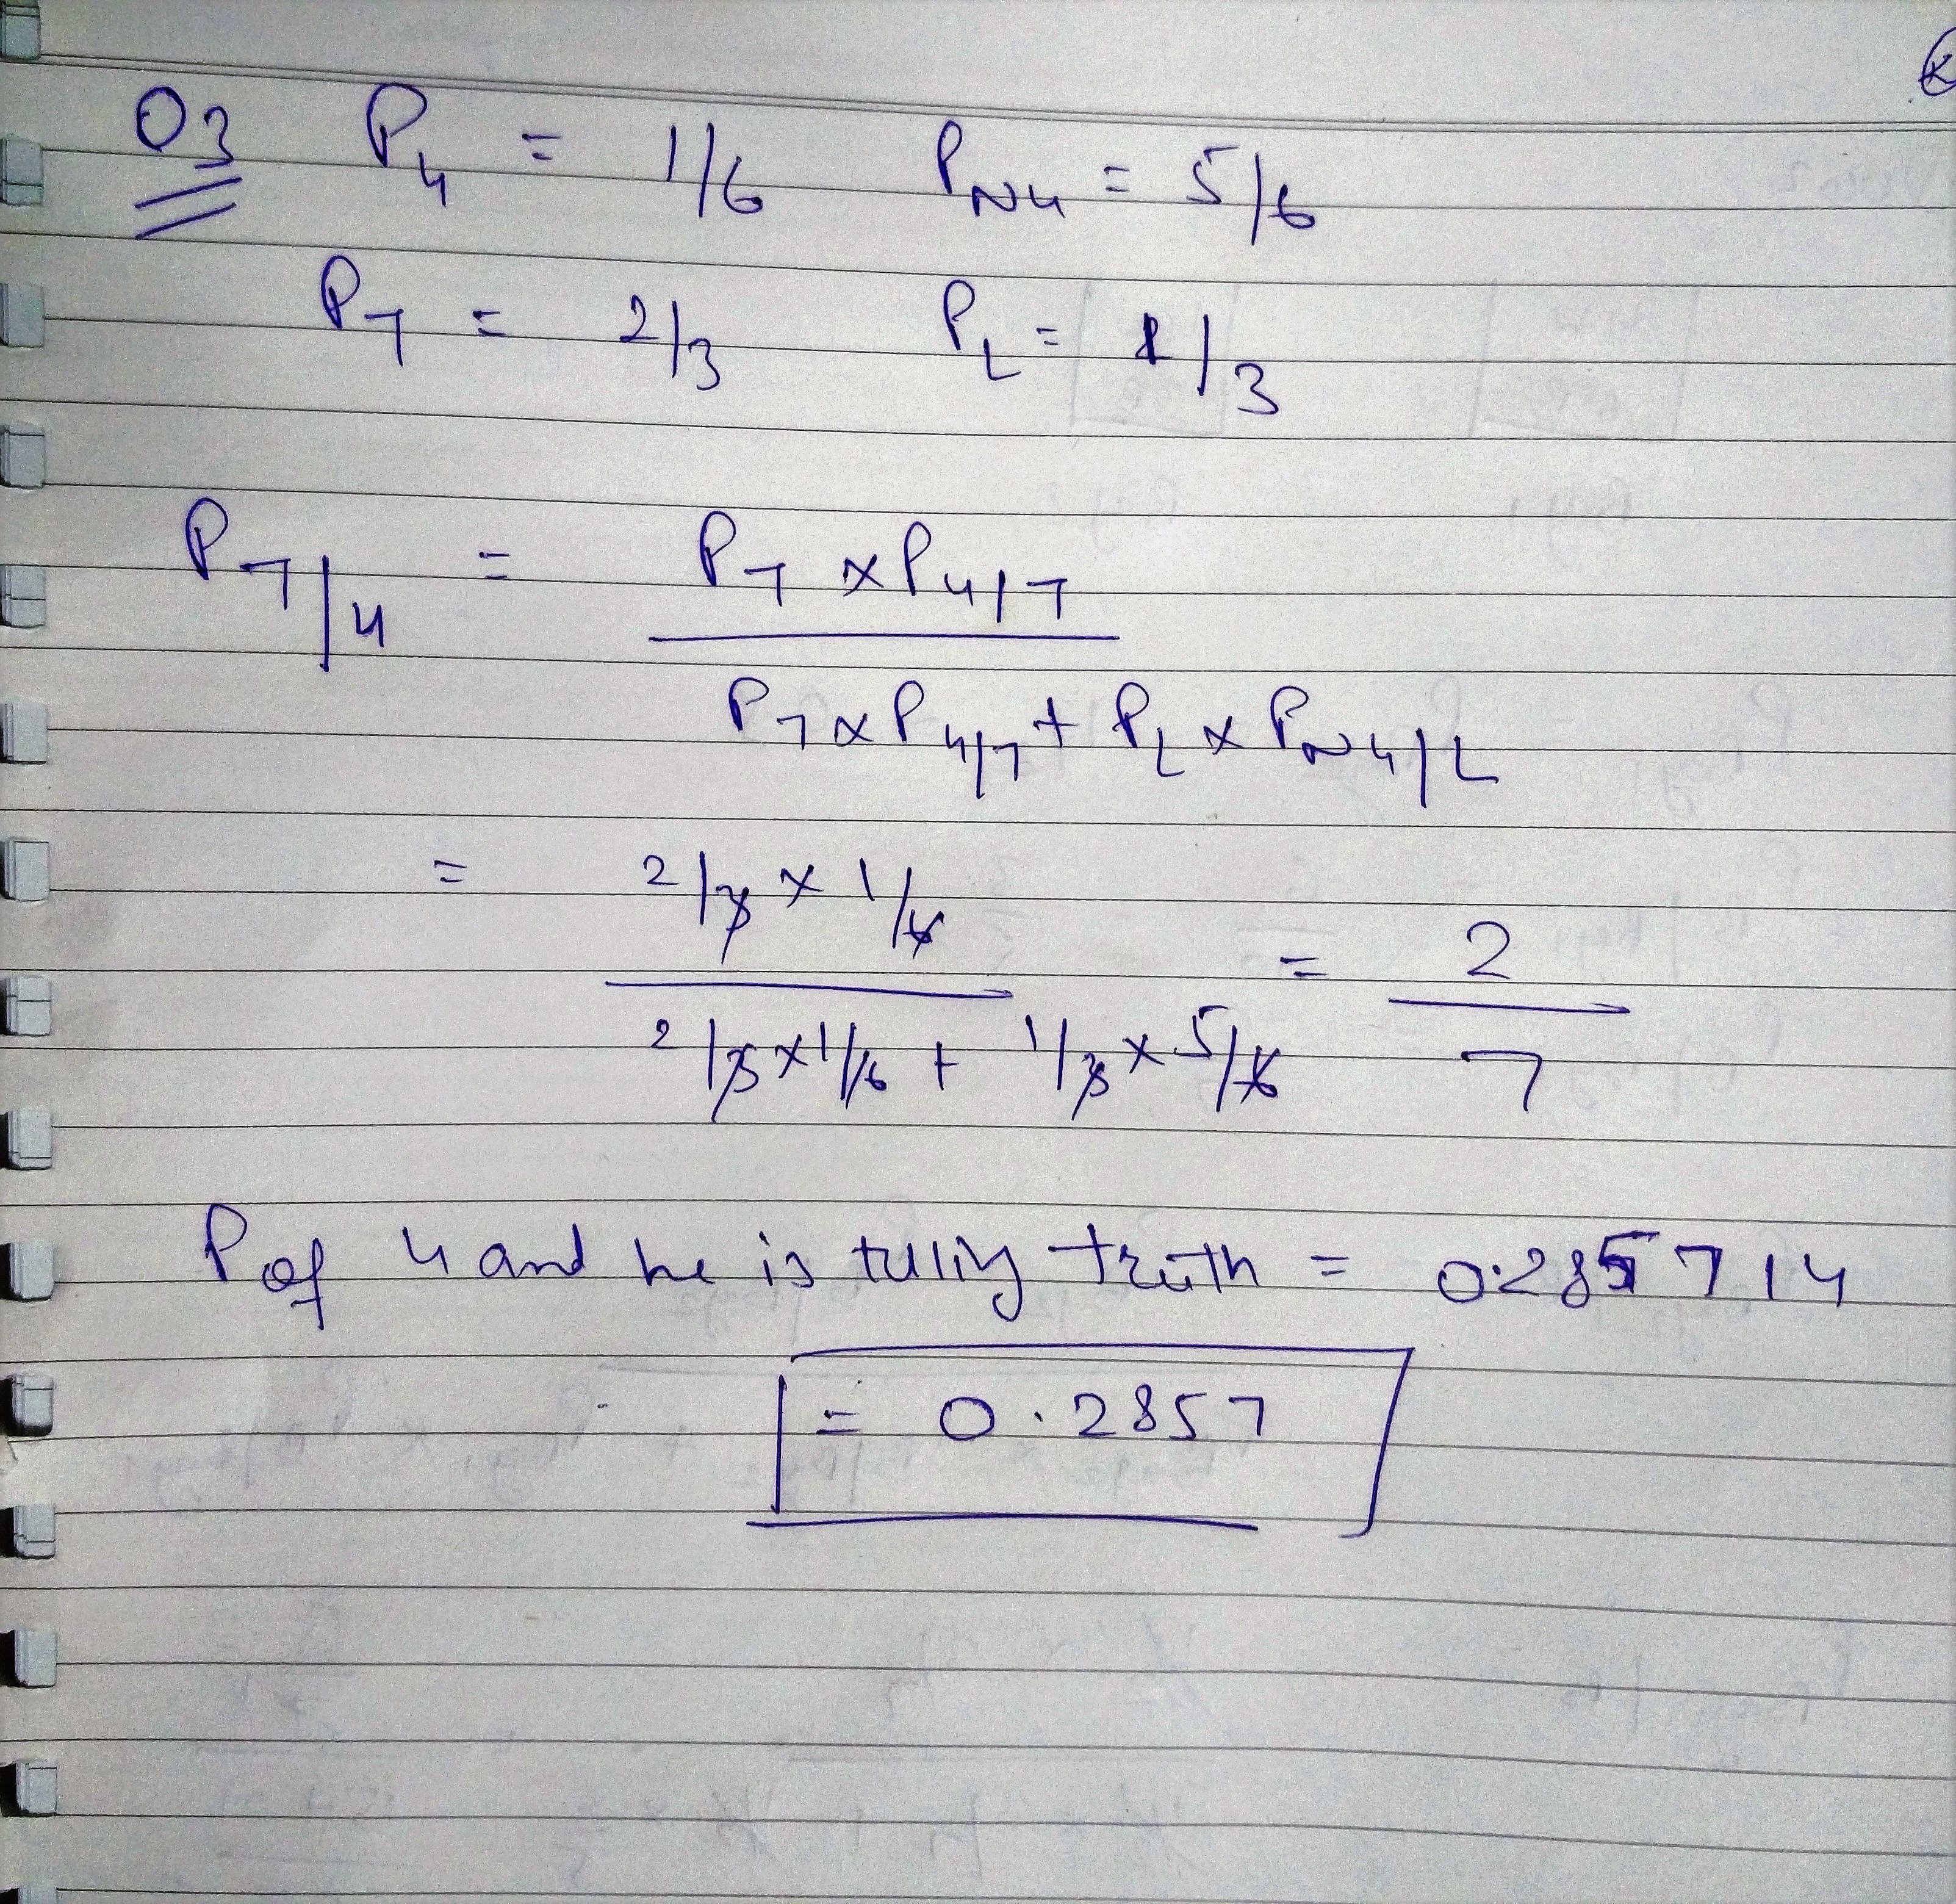 03 P4 = 1/6 PN4 = 5/6
PT = 2/3 PL = 1/3
PT/4 = PT x P4/T
PT x P4/T + PL x PN4/L
= 2/3 x 1/6
= 2
2/3 x 1/6 + 1/3 x 5/6
7
P of 4 and he is tlliy truth = 0.285714
= 0.2857